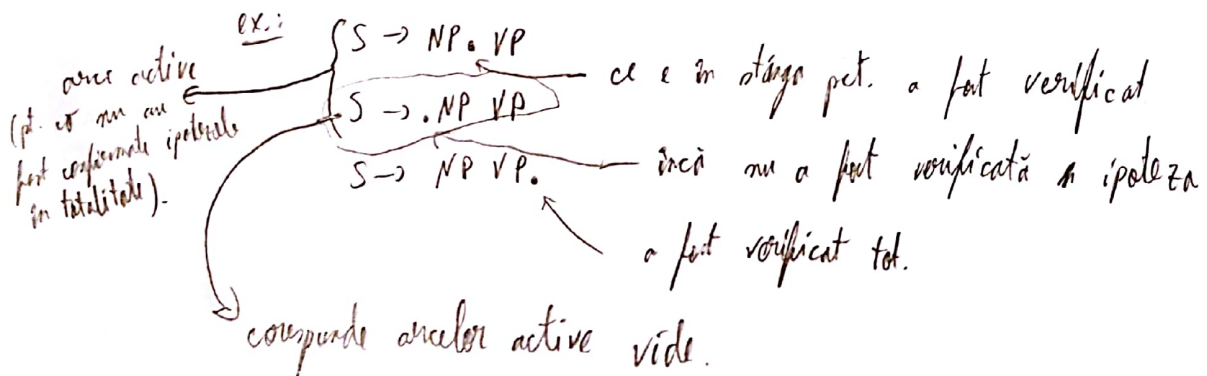 ex.:
S → NP. VP
S → .NP VP
S → NP VP.
arce active
(pt. că nu au
fost confirmate ipotezele
în totalitate).
ce e în stânga pct. a fost verificat
încă nu a fost verificată ipoteza
a fost verificat tot.
corespunde arcelor active vide.